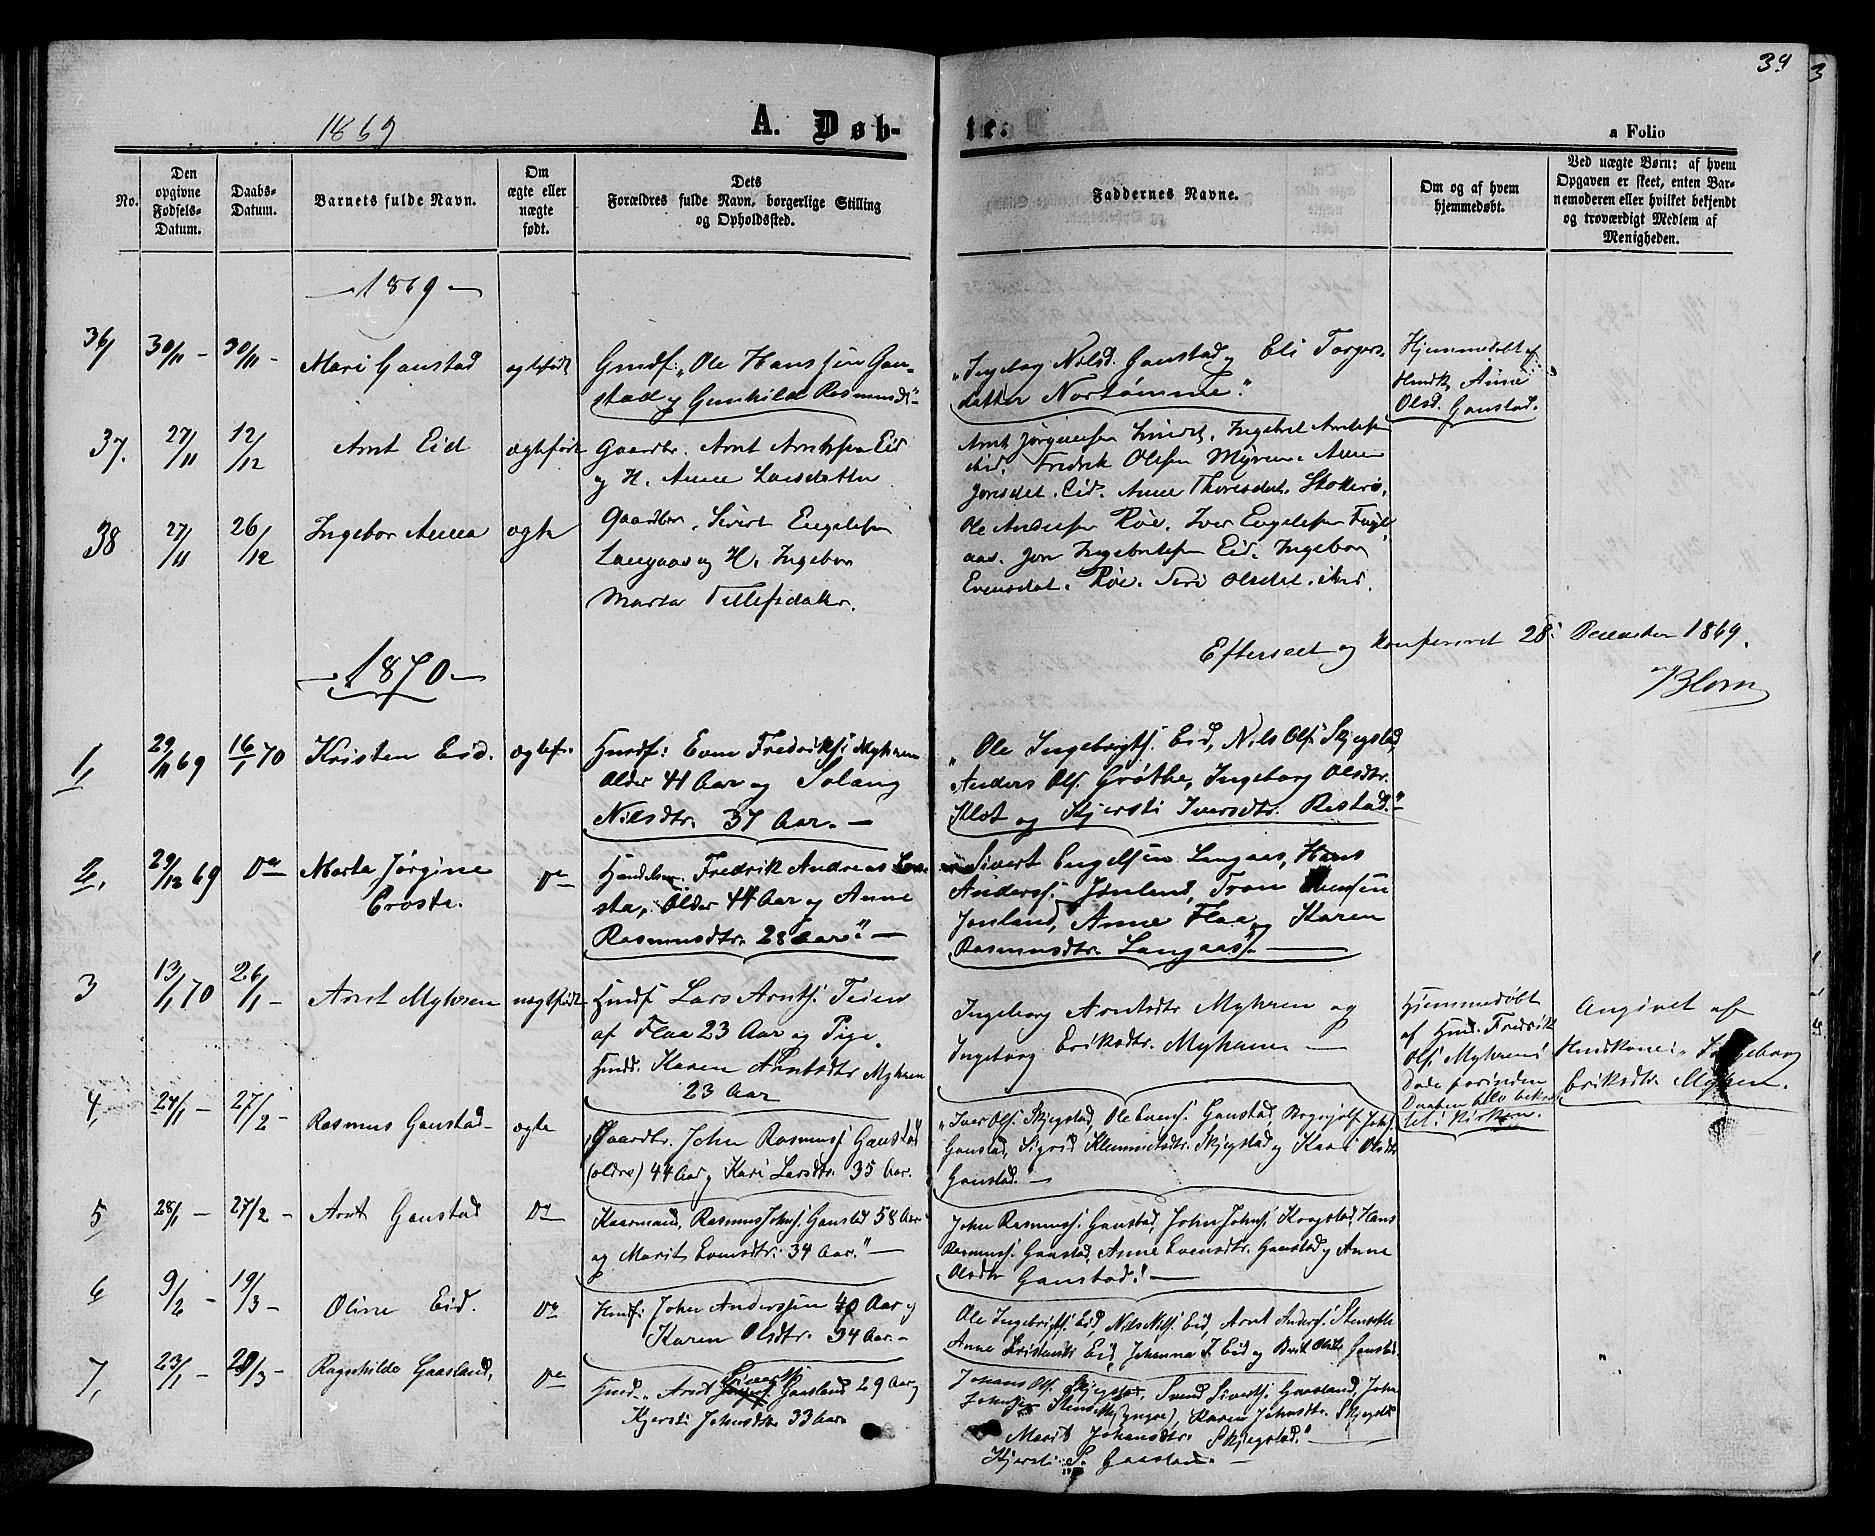 39
3
1869
A. Døb-
te.
a Folio
No.
Den
opgivne
Fødsels-
Datum.
Daabs-
Datum.
Barnets fulde Navn.
Om
ægte eller
nægte
født.
Dets
Forældres fulde Navn, borgerlige Stilling
og Opholdssted.
Faddernes Navne.
Om og af hvem
hjemmedøbt.
Ved nægte Børn: af hvem
Opgaven er skeet, enten Bar-
nemoderen eller hvilket bekjendt
og troværdigt Medlem af
Menigheden.
1869
36/
30/11 -
30/11 -
Mari Ganstad
ægtefødt
Gmdf: "Ole Hanssen Gan-
stad og Gunhild Rasmusd:"
"Ingeborg Nilsd. Ganstad og Eli Torgers-
datter Nortømme."
Hjemmedøbt af
Hmdk Anne
Olsd. Ganstad.
37.
27/11
12/12
Arnt Eid
ægtefødt
Gaardbr. Arnt Arntssen Eid
og H. Anne Larsdatter
Arnt Jørgensen Ingebret Arntsen
Eid. Fredrik Olsen Myren. Anne
Jonsdat. Eid. Anne Thoresdat.
38
27/11
26/12
Ingebor Anna
ægte
Gaardbr. Sivert Engelsen
Langaas og H. Ingebor
Marta Tellefsdatr.
Ole Andersen Røe. Iver Engelsen Fugl-
aas. Jon Ingebrigtsen Eid. Ingebor
Evensdat. Røe. Olsdat.
Efterseet og konfereret 28. December 1869.
Blom
1870
1,
29/11 69
16/1 70
Kristen Eid.
ægtef:
Hmdf: Even Fredriks: Myhren
Alder 41 Aar og Solaug
Nilsdtr. 37 Aar. —
"Ole Ingebrigts. Eid, Nils Ols: Skjegstad,
Anders Ols. Grøthe, Ingeborg Olsdtr.
Klæt og Kjersti Iversdtr. Restad." -
2,
29/12 69
Do
Marta Jørgine
Crosta.
Do
Handelsm. Fredrik Andreas Cro-
sta, Alder 44 Aar og Anne
Rasmusdtr. 28 Aar." —
Sivert Engelsen Langaas, Hans
Anderss. Jonland, Tron Evensen
Jonland, Anne Flaa og Karen
Rasmusdtr. Langaas". —
3
13/1 70
26/1 -
Arnt Myhren
uægtefødt
Hmdf Lars Arnts: Teien
af Flaa 23 Aar og Pige.
Hmdd. Karen Arntsdtr Myhren
23 Aar
Ingeborg Arntsdtr Myhren og
Ingeborg Eriksdtr. Myhren —
Hjemmedøbt
af Hmd. Fredrik
Ols: Myhren
Døde forinden
Daaben blev bekræf-
tet i Kirken.
Angivet af
Hmdkone: Ingeborg
Eriksdtr. Myhren.
4,
24/1 -
27/2 -
Rasmus Ganstad -
ægte
Gaardbr. John Rasmuss: Ganstad
(ældre) 44 Aar og Kari Larsdtr. 35 Aar.
"Iver Ols. Skjegstad, Ole Evens: Ganstad, Brynjolf Johs:
Ganstad, Sigrid Klemmetsdtr. Skjegstad og Kari Olsdtr
Ganstad." -
5
28/1 -
27/2 -
Arnt Ganstad
Do
Kaarmand, Rasmus Johns: Ganstad 58 Aar
og Marit Evensdtr. 34 Aar." —
John Rasmuss: Ganstad, John Johns: Kregstad, Hans
Rasmuss. Ganstad, Anne Evensdtr. Ganstad og Anne
Olsdtr Ganstad." —
6
9/2 -
19/3 -
Oline Eid.
Do
Hmdf: John Anderssen 40 Aar og
Karen Olsdtr. 34 Aar. -
Ole Ingebrigts: Eid, Nils Nils: Eid, Arnt Anders: Stensethe
Anne Eid, Johanna I. Eid og Berit Olsdtr Ganstad.
7,
23/1 -
20/3 -
Ragnhilde Gaasland,
Do
Siverts
Hmd. "Arnt Gaasland 29 Aar og
Kjersti Johnsdtr 33 Aar
Johans Ols. Skjegstad, Svend Siverts: Gaasland, John
Johnsen Stenseth (yngre), Karen Johnsdtr. Skjegstd
Marit Johansdtr. Skjegstad." —
Kjersti S. Gaasland. -